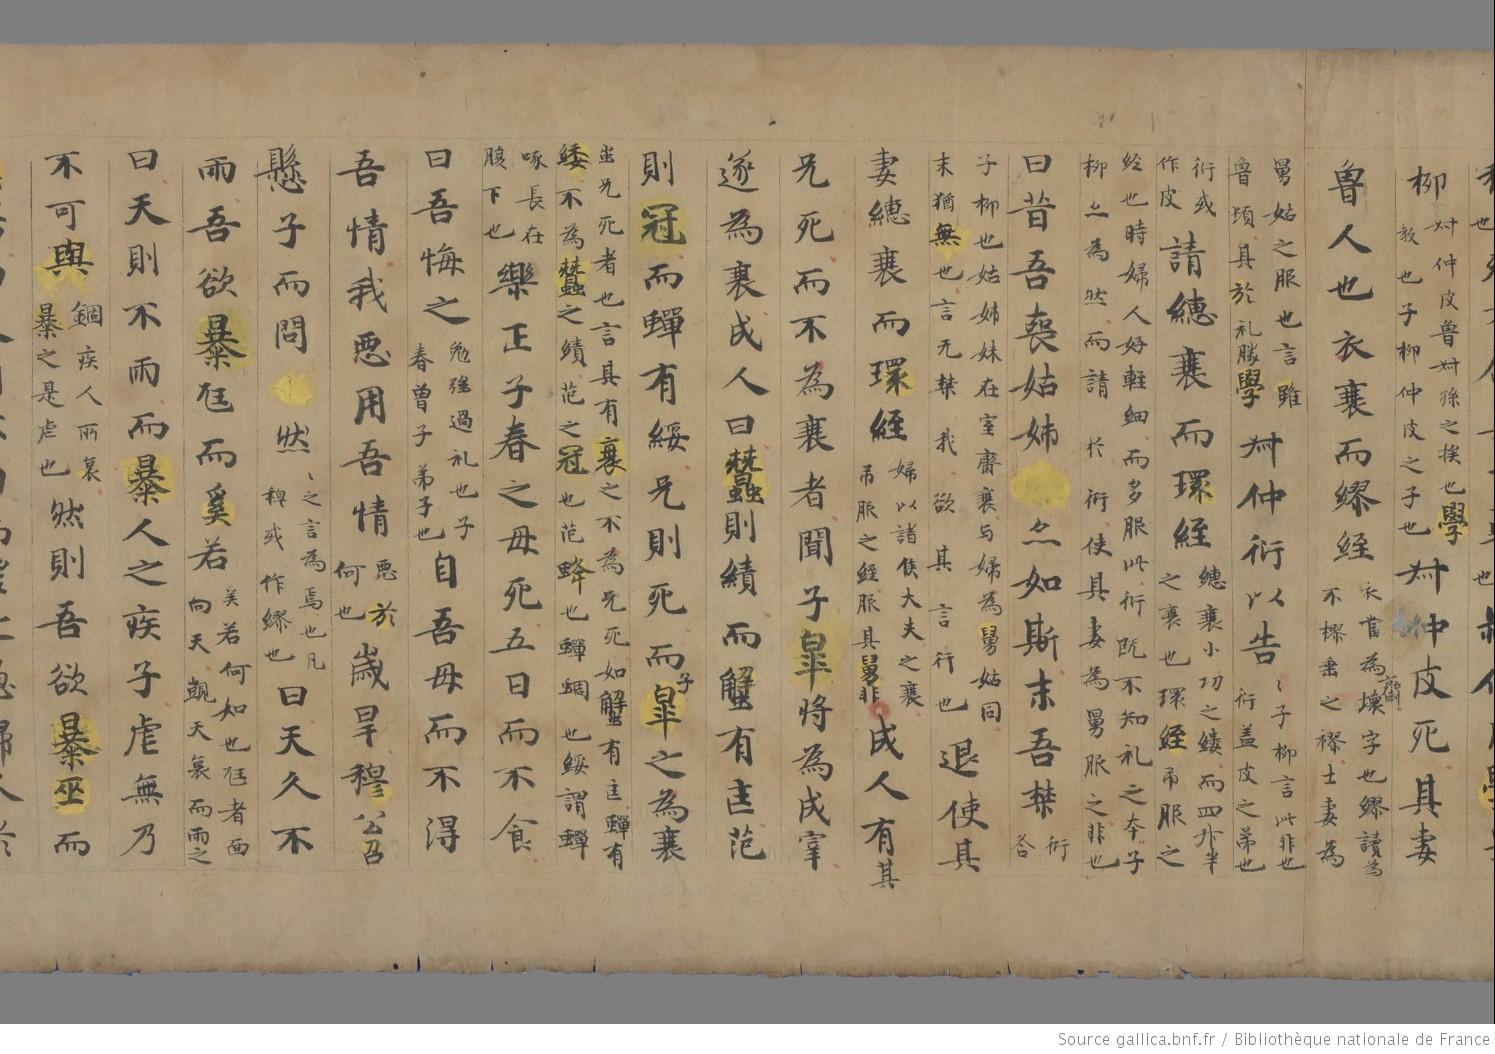 柳叔仲皮魯叔孫之族也學
教也子柳仲皮之子也叔仲皮死其妻
魯人也衣衰而繆絰衣當為齊壞字也繆讀為
不樛垂之樛士妻為
舅姑之服也言雖
魯頓其於礼勝學叔仲衍以告〻子柳言此非也
衍盖皮之弟也
衍或
作皮請繐衰而環絰繐衰小功之縷而四升半
之衰也環絰弔服之
絰也時婦人好輕細而多服此衍既不知礼之本子
柳亦為然而請於衍使其妻為舅服之非也
曰昔吾喪姑姊亦如斯末吾禁衍
荅
子柳也姑姊妹在室齊衰与婦為舅姑同
末猶無也言无禁我欲其言行也退使其
妻繐衰而環絰婦以諸侯大夫之衰
弔服之絰服其舅非成人有其
兄死而不為衰者聞子皐將為成宰
遂為衰成人曰蠶則績而蟹有匡范
則冠而蟬有緌兄則死而子皐之為衰
蚩兄死者也言其有衰之不為兄死如蟹有匡蟬有
緌不為蠶之績范之冠也范蜂也蟬蜩也緌謂蟬
喙長在
腹下也樂正子春之母死五日而不食
曰吾悔之勉強過礼也子
春曾子弟子也自吾母而不得
吾情我惡用吾情惡於
何也歲旱穆公召
懸子而問然〻之言為焉也凡
穆或作繆也曰天久不
雨吾欲暴尪而奚若奚若何如也尪者面
向天覬天哀而雨之
曰天則不雨而暴人之疾子虐無乃
不可與錮疾人所哀
暴之是虐也然則吾欲暴巫而
Source gallica.bnf.fr / Bibliothèque nationale de France